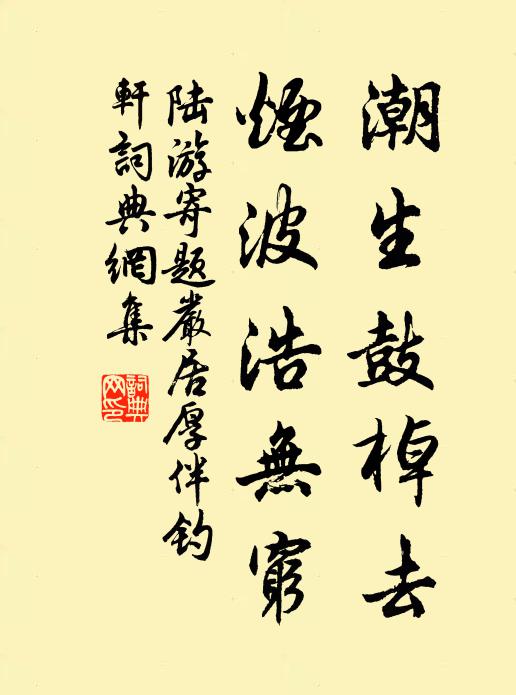 潮生鼓棹去
煙波浩無窮
陆游寄题嚴居厚伴釣
軒詞典網集
詞典网印